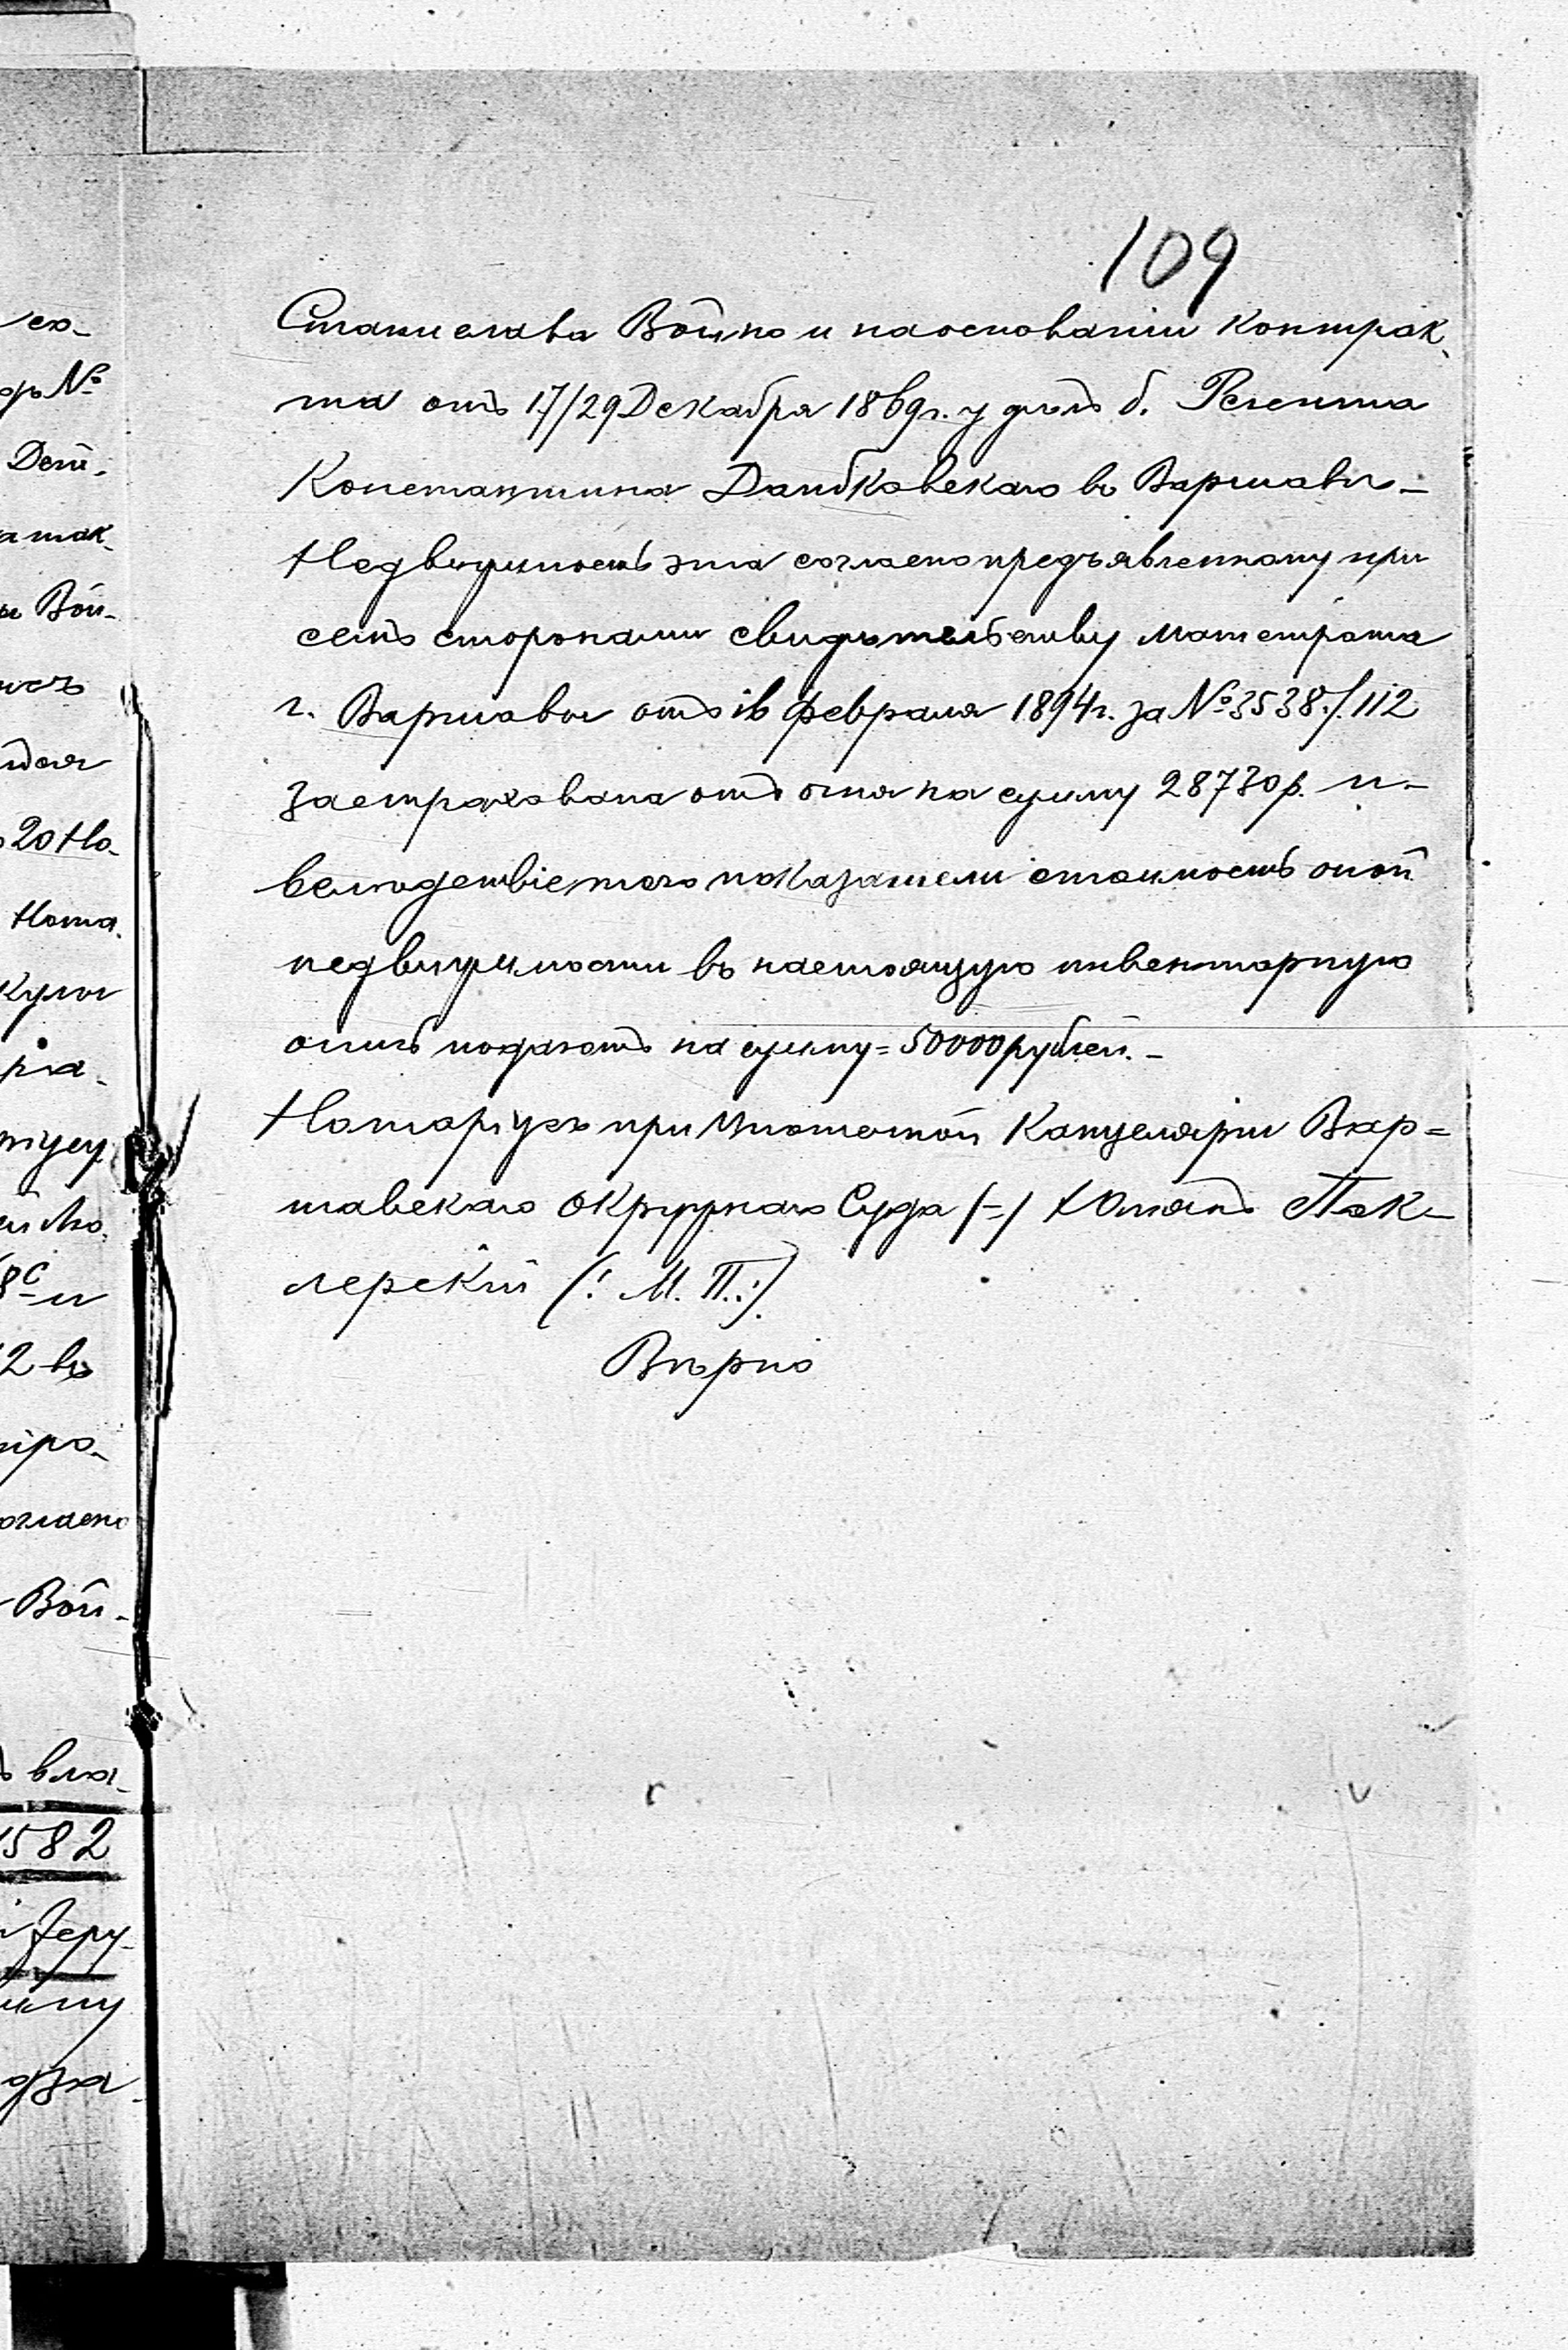 109
Станислава Войно и на основаніи контрак-
та отъ 17/29 Декабря 1869 г. у дѣлъ б. Регента
Константина Дамбковскаго въ Варшавѣ –
Недвижимость эта согласно предъявленному при
семъ сторонами свидѣтельству Магистрата
г. Варшавы отъ 16 февраля 1894 г. за № 3538./.112
застрахована отъ огня на сумму 28730 р. и –
вслѣдствіе того показатели стоимость оной
недвижимости въ настоящую инвентарную
опись подаютъ на сумму = 50000 рублей. –
Нотаріусъ при Ипотечной Канцеляріи Вар=
шавскаго Окружнаго Суда /-/ Юліянъ Пэк-
лерскій (: М. П. :)
Вѣрно
ех-
№
Вой-
20 Но-
2 въ
Вой-
1582